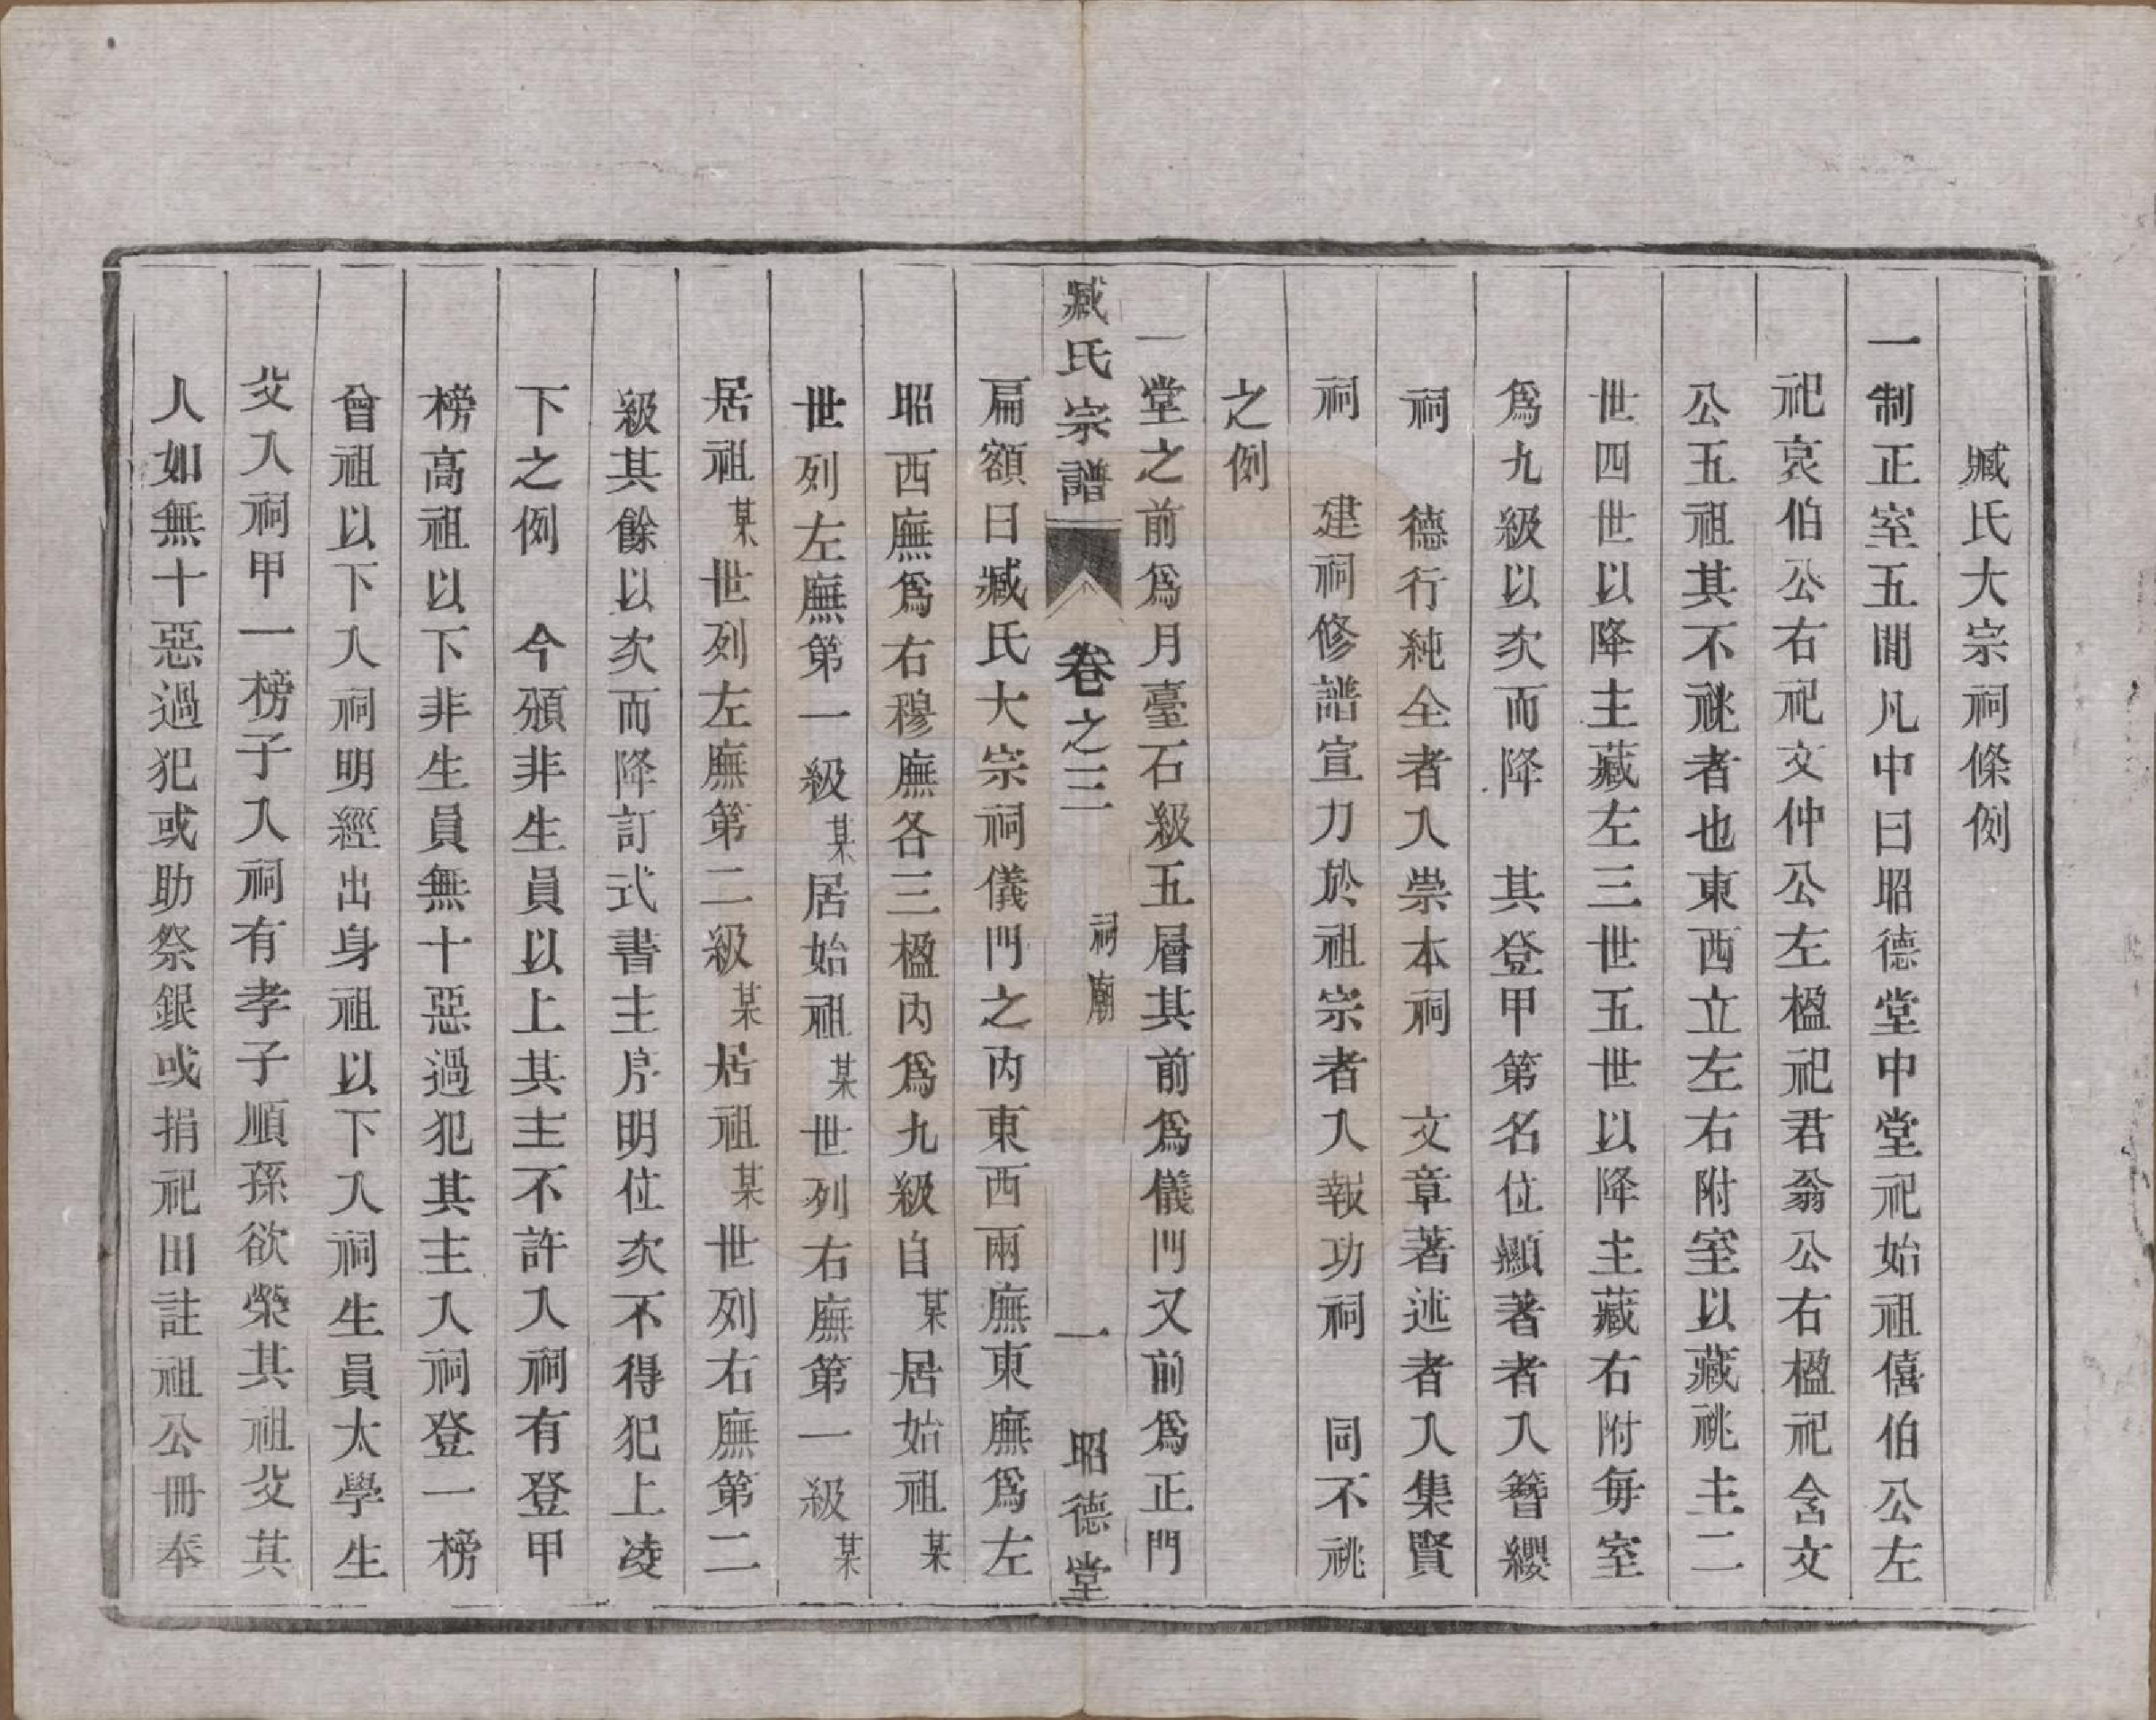 臧氏大宗祠條例
一制正室五間凡中曰昭德堂中堂祀始祖僖伯公左
祀哀伯公右祀文仲公左楹祀君翁公右楹祀含文
公五祖其不祧者也東西立左右附室以藏祧主二
世四世以降主藏左三世五世以降主藏右附每室
爲九級以次而降 其登甲第名位顯著者入簪纓
祠 德行純全者入崇本祠 文章著述者入集賢
祠 建祠修譜宣力於祖宗者入報功祠 同不祧
之例
一堂之前爲月臺石級五層其前爲儀門又前爲正門
臧氏宗譜 卷之三 祠廟 一 昭德堂
扁額曰臧氏大宗祠儀門之內東西兩廡東廡爲左
昭西廡爲右穆廡各三楹內爲九級自某居始祖某
世列左廡第一級某居始祖某世列右廡第一級某
居祖某世列左廡第二級某居祖某世列右廡第二
級其餘以次而降訂式書主序明位次不得犯上凌
下之例 今頒非生員以上其主不許入祠有登甲
榜高祖以下非生員無十惡過犯其主入祠登一榜
曾祖以下入祠明經出身祖以下入祠生員太學生
父入祠甲一榜子入祠有孝子順孫欲榮其祖父其
人如無十惡過犯或助祭銀或捐祀田註祖公冊奉